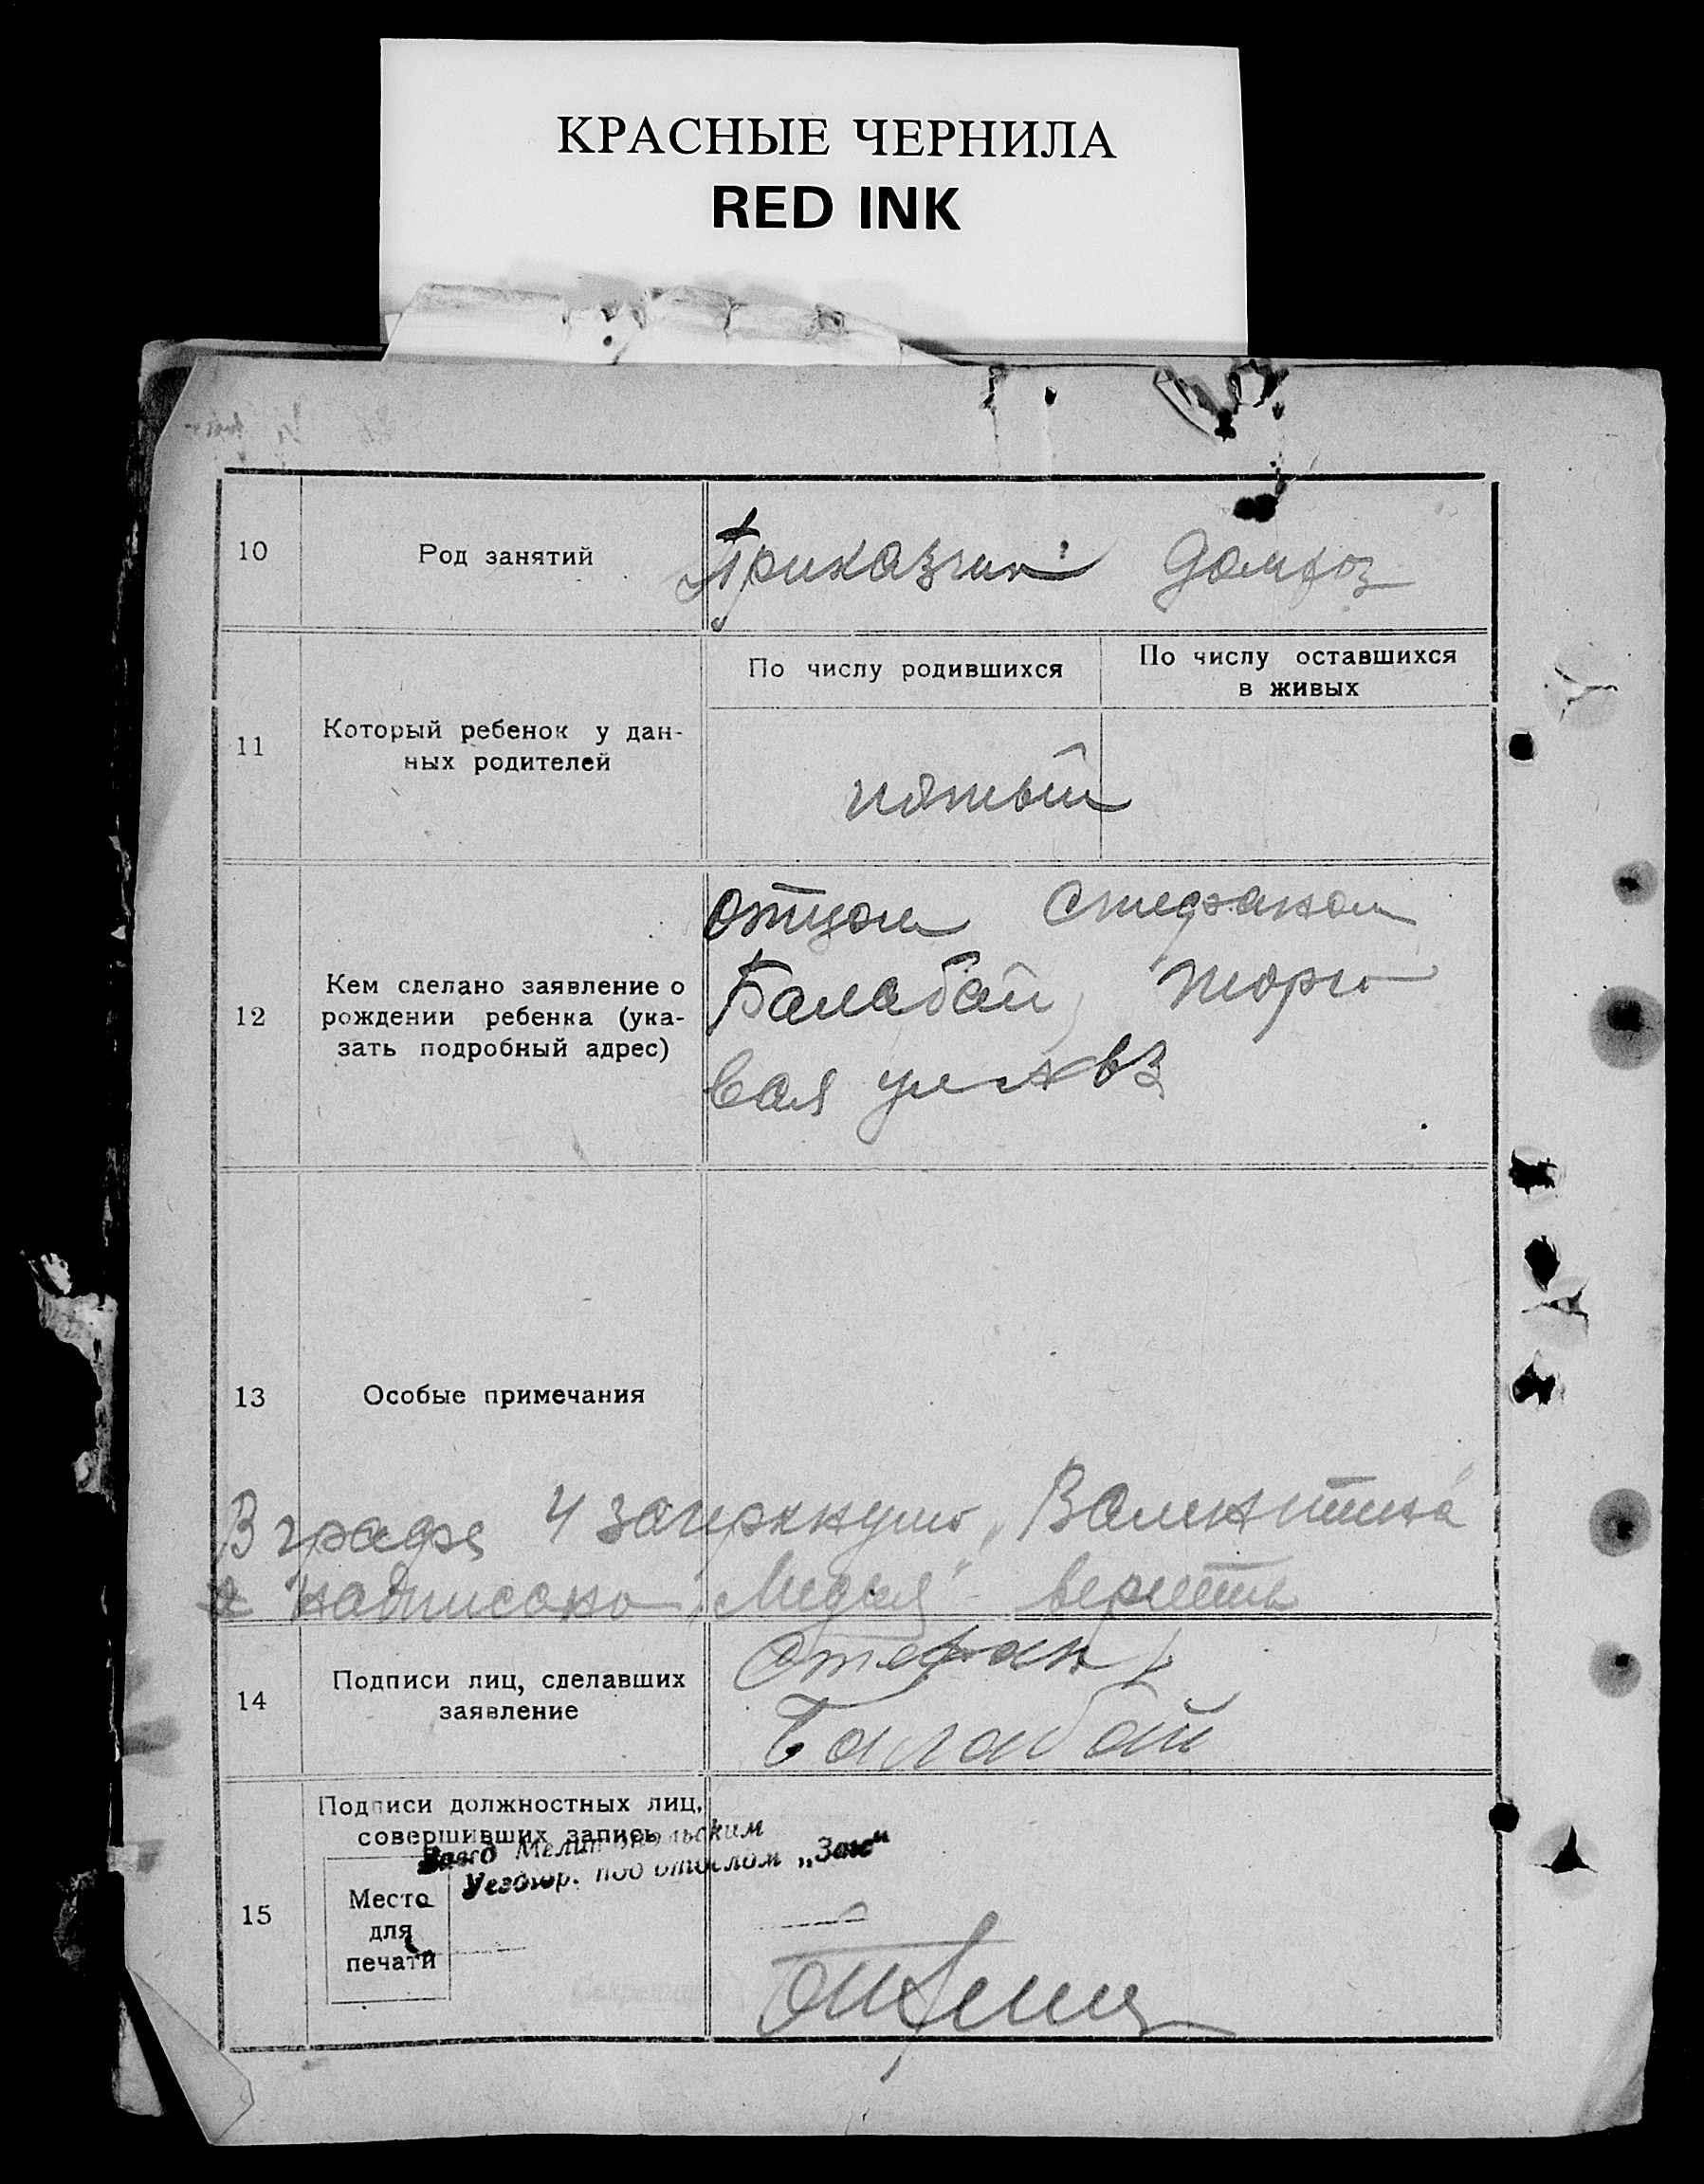 КРАСНЫЕ ЧЕРНИЛА
RED INK
10
Род занятий
Приказчик домхоз
11
Который ребенок у дан-
ных родителей
По числу родившихся
По числу оставшихся
в живых
пятый
12
Кем сделано заявление о
рождении ребенка (ука-
зать подробный адрес)
отцом Стефаном
Балабай, Торго
вая ул
13
Особые примечания
В графе 4 зачеркнуто „Валентина"
надписано „Лидия" верить
14
Подписи лиц, сделавших
заявление
Стефан
Балабай
15
Подписи должностных лиц,
совершивших запись
Завед Мелитопольским
Уездгор. под отделом „Загс"
Место
для
печати